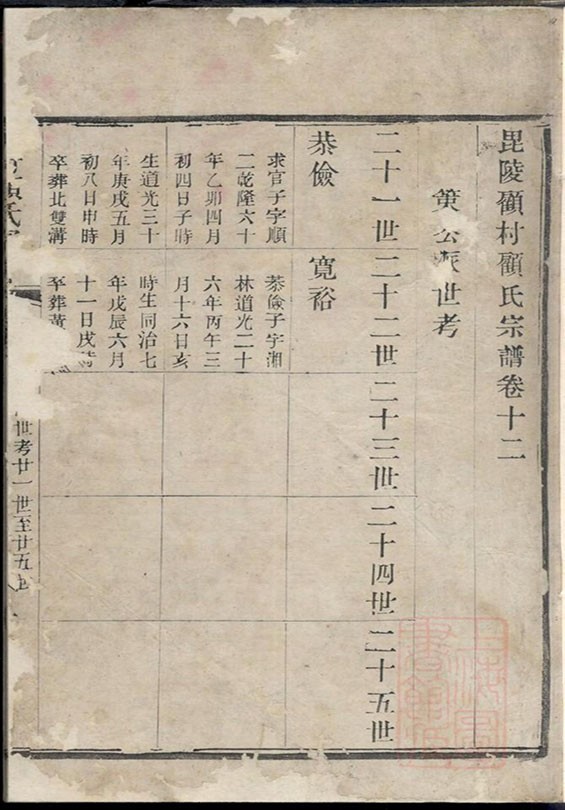 毘陵顧村顧氏宗譜卷十二
公派世考
二十一世
二十二世
二十三世
二十四世
二十五世
恭儉
求官子字順
二乾隆六十
年乙卯四月
初四日子時
生道光三十
年庚戌五月
初八日申時
卒葬北雙溝
寬裕
恭儉子字湘
林道光二十
六年丙午三
月十六日亥
時生同治七
年戊辰六月
十一日戌時
卒葬黃
世考廿一世至廿五世
上海圖
書館藏